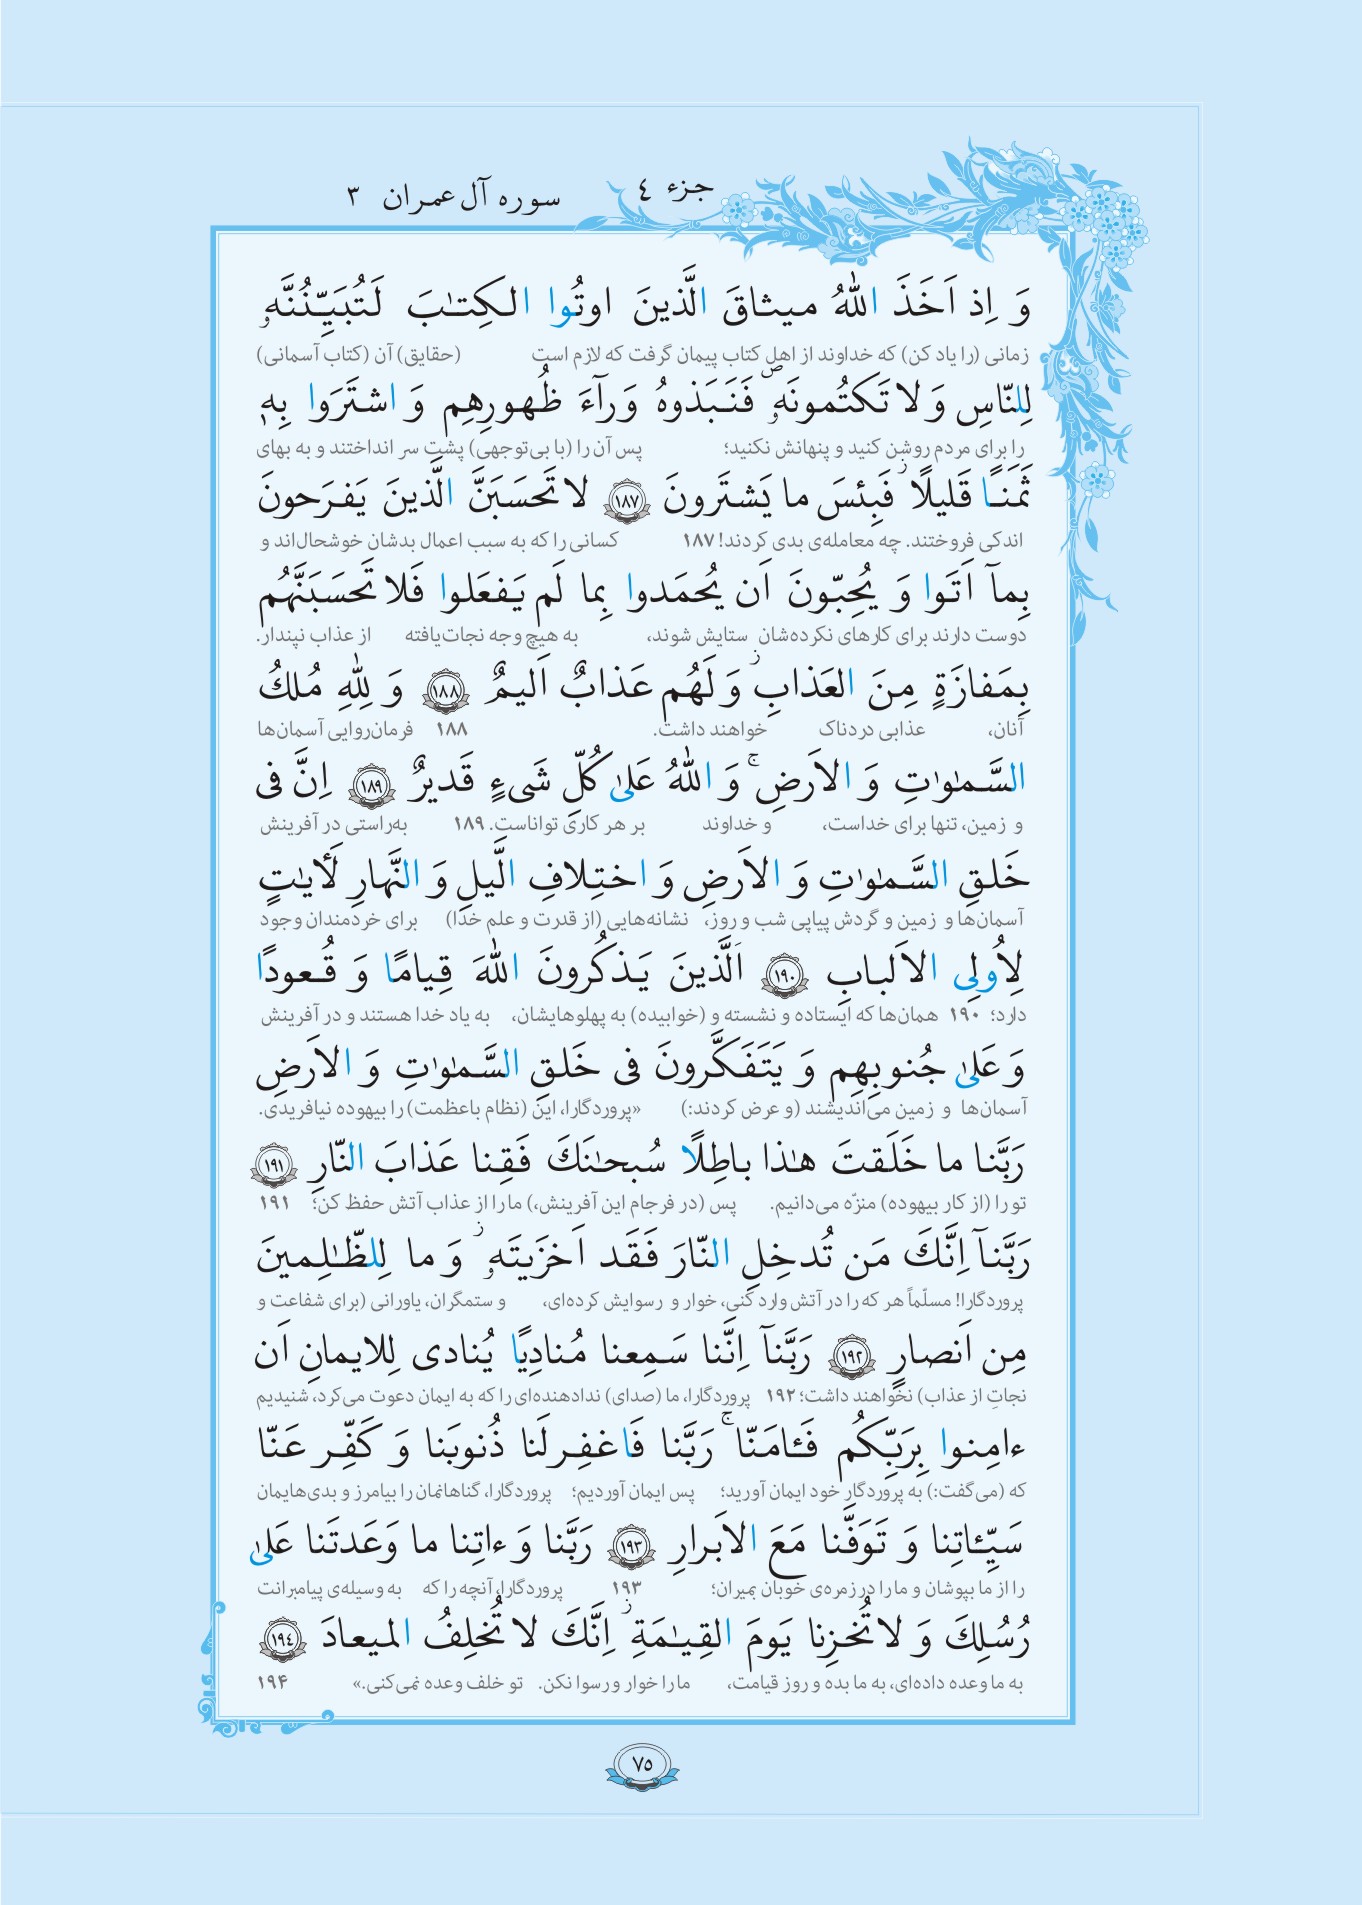 جزء ٤
سوره آل عمران ٣
وَ اِذ اَخَذَ اللّٰهُ ميثاقَ الَّذينَ اوتُوا الكِتٰبَ لَتُبَيِّنُنَّهٗ
زمانی (را یاد کن) که خداوند از اهل کتاب پیمان گرفت که لازم است (حقایق) آن (کتاب آسمانی)
لِلنّاسِ وَ لا تَكتُمونَهٗ ۖ فَنَبَذوهُ وَرآءَ ظُهورِهِم وَ اشتَرَوا بِهٖ
را برای مردم روشن کنید و پنهانش نکنید؛ پس آن را (با بی‌توجهی) پشت سر انداختند و به بهای
ثَمَنًا قَليلًا ۫ فَبِئسَ ما يَشتَرونَ ﴿١٨٧﴾ لا تَحسَبَنَّ الَّذينَ يَفرَحونَ
اندکی فروختند. چه معامله‌ی بدی کردند! ۱۸۷ کسانی را که به سبب اعمال بدشان خوشحال‌اند و
بِمآ اَتَوا وَ يُحِبّونَ اَن يُحمَدوا بِما لَم يَفعَلوا فَلا تَحسَبَنَّهُم
دوست دارند برای کارهای نکرده‌شان ستایش شوند، به هیچ وجه نجات‌یافته از عذاب نپندار.
بِمَفازَةٍ مِنَ العَذابِ ۫ وَ لَهُم عَذابٌ اَليمٌ ﴿١٨٨﴾ وَ لِلّٰهِ مُلكُ
آنان، عذابی دردناک خواهند داشت. ۱۸۸ فرمان‌روایی آسمان‌ها
السَّمٰوٰتِ وَ الاَرضِ ۚ وَ اللّٰهُ عَلىٰ كُلِّ شَىءٍ قَديرٌ ﴿١٨٩﴾ اِنَّ فى
و زمین، تنها برای خداست، و خداوند بر هر کاری تواناست. ۱۸۹ به‌راستی در آفرینش
خَلقِ السَّمٰوٰتِ وَ الاَرضِ وَ اختِلافِ الَّيلِ وَ النَّهارِ لَأٓيٰتٍ
آسمان‌ها و زمین و گردش پیاپی شب و روز، نشانه‌هایی (از قدرت و علم خدا) برای خردمندان وجود
لِاُولِى الاَلبابِ ﴿١٩٠﴾ اَلَّذينَ يَذكُرونَ اللّٰهَ قِيامًا وَ قُعودًا
دارد؛ ۱۹۰ همان‌ها که ایستاده و نشسته و (خوابیده) به پهلوهایشان، به یاد خدا هستند و در آفرینش
وَ عَلىٰ جُنوبِهِم وَ يَتَفَكَّرونَ فى خَلقِ السَّمٰوٰتِ وَ الاَرضِ
آسمان‌ها و زمین می‌اندیشند (و عرض کردند:) «پروردگارا، این (نظام باعظمت) را بیهوده نیافریدی.
رَبَّنا ما خَلَقتَ هٰذا باطِلًا سُبحٰنَكَ فَقِنا عَذابَ النّارِ ﴿١٩١﴾
تو را (از کار بیهوده) منزّه می‌دانیم. پس (در فرجام این آفرینش،) ما را از عذاب آتش حفظ کن؛ ۱۹۱
رَبَّنآ اِنَّكَ مَن تُدخِلِ النّارَ فَقَد اَخزَيتَهٗ ۫ وَ ما لِلظّٰلِمينَ
پروردگارا! مسلّماً هر که را در آتش وارد کنی، خوار و رسوایش کرده‌ای، و ستمگران، یاورانی (برای شفاعت و
مِن اَنصارٍ ﴿١٩٢﴾ رَبَّنآ اِنَّنا سَمِعنا مُنادِيًا يُنادى لِلايمانِ اَن
نجاتِ از عذاب) نخواهند داشت؛ ۱۹۲ پروردگارا، ما (صدای) ندادهنده‌ای را که به ایمان دعوت می‌کرد، شنیدیم
ءامِنوا بِرَبِّكُم فَـٔامَنّا ۚ رَبَّنا فَاغفِر لَنا ذُنوبَنا وَ كَفِّر عَنّا
که (می‌گفت:) به پروردگار خود ایمان آورید؛ پس ایمان آوردیم؛ پروردگارا، گناهانمان را بیامرز و بدی‌هایمان
سَيِّـٔاتِنا وَ تَوَفَّنا مَعَ الاَبرارِ ﴿١٩٣﴾ رَبَّنا وَ ءاتِنا ما وَعَدتَنا عَلىٰ
را از ما بپوشان و ما را در زمره‌ی خوبان بمیران؛ ۱۹۳ پروردگارا، آنچه را که به وسیله‌ی پیامبرانت
رُسُلِكَ وَ لا تُخزِنا يَومَ القِيٰمَةِ ۫ اِنَّكَ لا تُخلِفُ الميعادَ ﴿١٩٤﴾
به ما وعده داده‌ای، به ما بده و روز قیامت، ما را خوار و رسوا نکن. تو خلف وعده نمی‌کنی.» ۱۹۴
٧٥